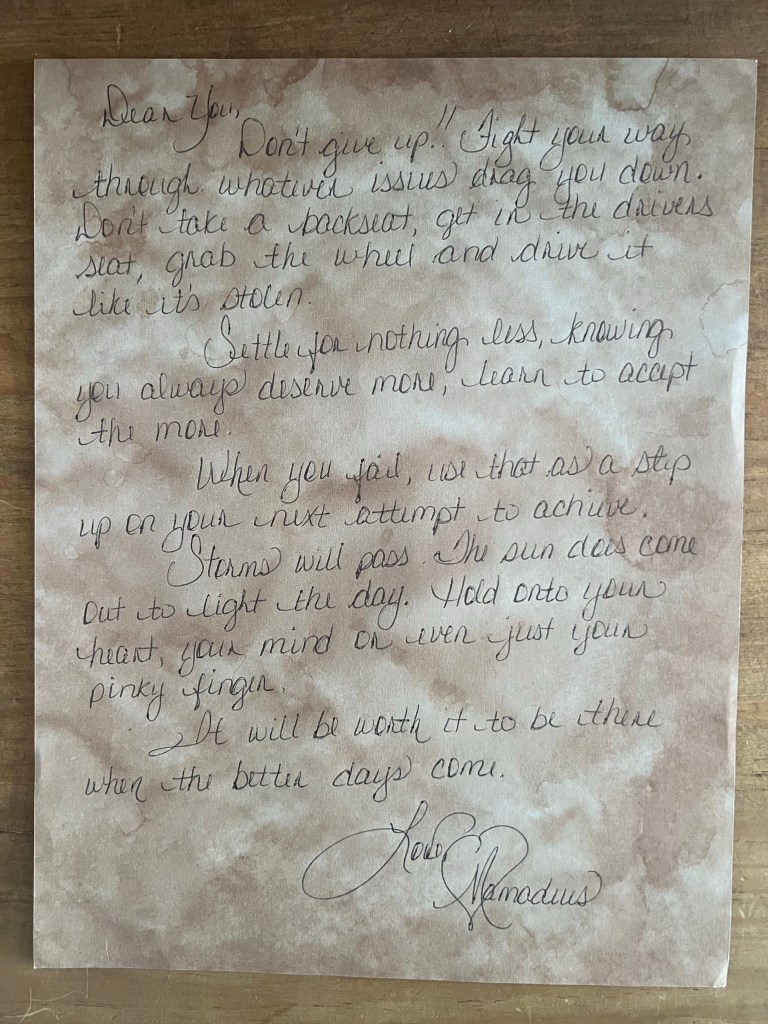 Dear You,
Don't give up!! Fight your way
through whatever issues drag you down.
Don't take a backseat, get in the drivers
seat, grab the wheel and drive it
like it's stolen.
Settle for nothing less, knowing
you always deserve more, learn to accept
the more.
When you fail, use that as a step
up on your next attempt to achieve.
Storms will pass. The sun does come
out to light the day. Hold onto your
heart, your mind or even just your
pinky finger.
It will be worth it to be there
when the better days come.
Love,
Mamadeus